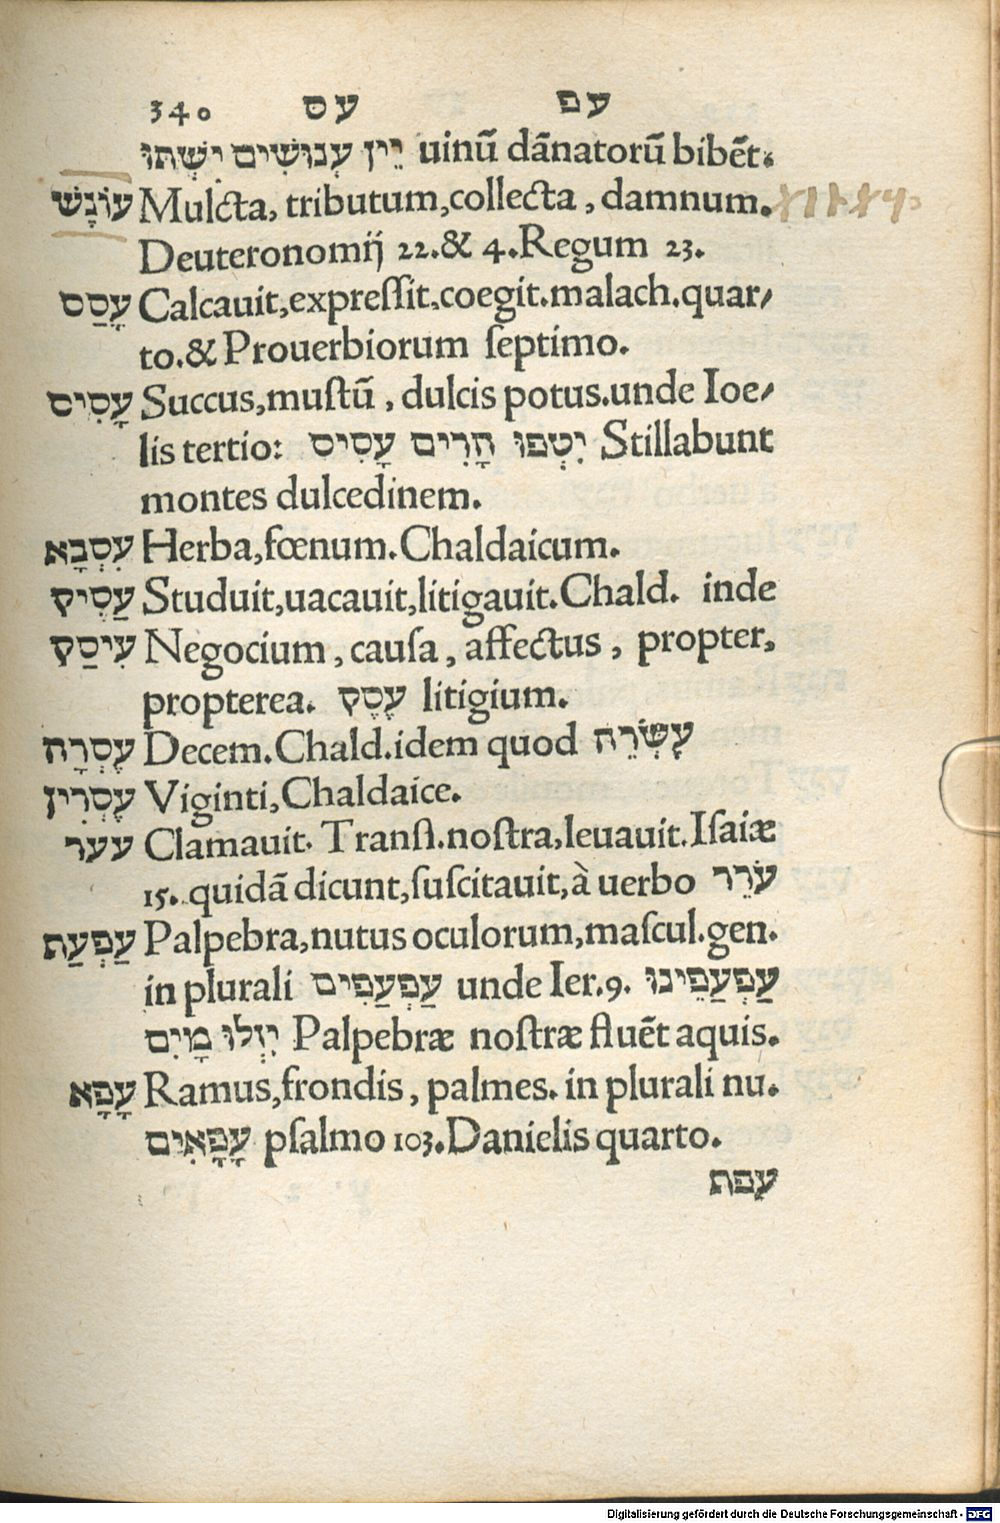 340 עס עפ
יֵין עְנוּשִׁים יִשְׁתּוּ uinū dānatorū bibēt.
עוֹנֶשׁ Mulcta, tributum, collecta, damnum.
Deuteronomij 22. & 4. Regum 23.
עָסַס Calcauit, expreſſit. coegit. malach. quar⸗
to. & Prouerbiorum ſeptimo.
עָסִיס Succus, muſtū, dulcis potus. unde Ioe⸗
lis tertio: יִטְפוּ הָרִים עָסִיס Stillabunt
montes dulcedinem.
עִסְבָא Herba, fœnum. Chaldaicum.
עַסִיק Studuit, uacauit, litigauit. Chald. inde
עִיסַק Negocium, cauſa, affectus, propter,
propterea. עֶסֶק litigium.
עֶסְרָה Decem. Chald. idem quod עֶשְׂרֵה
עֶסְרִין Viginti, Chaldaice.
עער Clamauit. Tranſl. noſtra, leuauit. Iſaiæ
15. quidā dicunt, ſuſcitauit, à uerbo עֹרֵר
עַפְעַת Palpebra, nutus oculorum, maſcul. gen.
in plurali עַפְעַפִים unde Ier. 9. עַפְעַפֵינוּ
יִזְלוּ מָיִם Palpebræ noſtræ fluēt aquis.
עָפָא Ramus, frondis, palmes. in plurali nu.
עָפָאִים pſalmo 103. Danielis quarto.
עפת
Digitalisierung gefördert durch die Deutsche Forschungsgemeinschaft - DFG